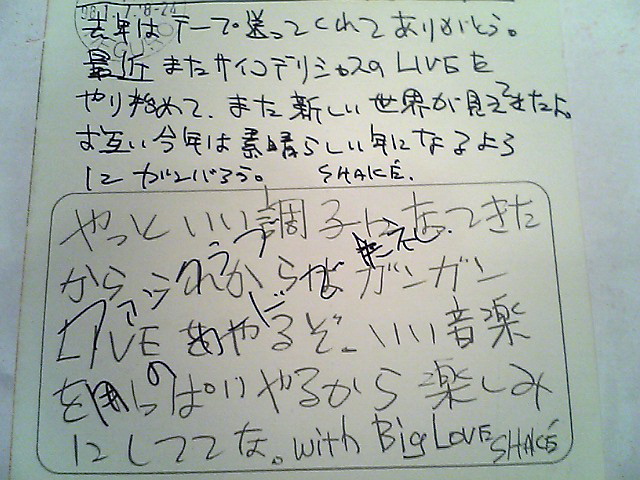 98.1.7.18-24
去年はテープ送ってくれてありがとう。
最近またサイコデリシャスのLIVEを
やり始めて、また新しい世界が見えてきたよ。
お互い今年は素晴らしい年になるよう
にガンバろう。 SHAKE.
やっといい調子になってきた
から これからは ガンガン
LIVE もやるぞ。いい音楽
を いっぱいやるから楽しみ
にしててな。with Big LOVE SHAKE